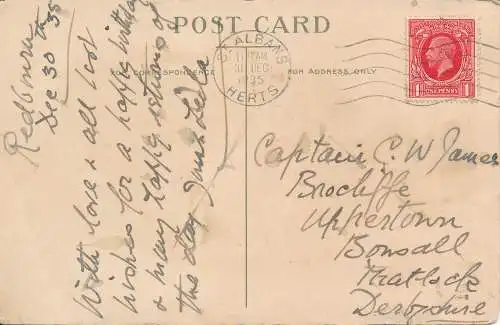 POST CARD
FOR CORRESPONDENCE
FOR ADDRESS ONLY
ST. ALBANS
DEC
1935
HERTS
ONE PENNY
Redbourn
Dec 30th 35
With love & all best
wishes for a happy birthday
& many happy returns of
the day
Captain C. W. James
Uppertown
Bonsall
Matlock
Derbyshire